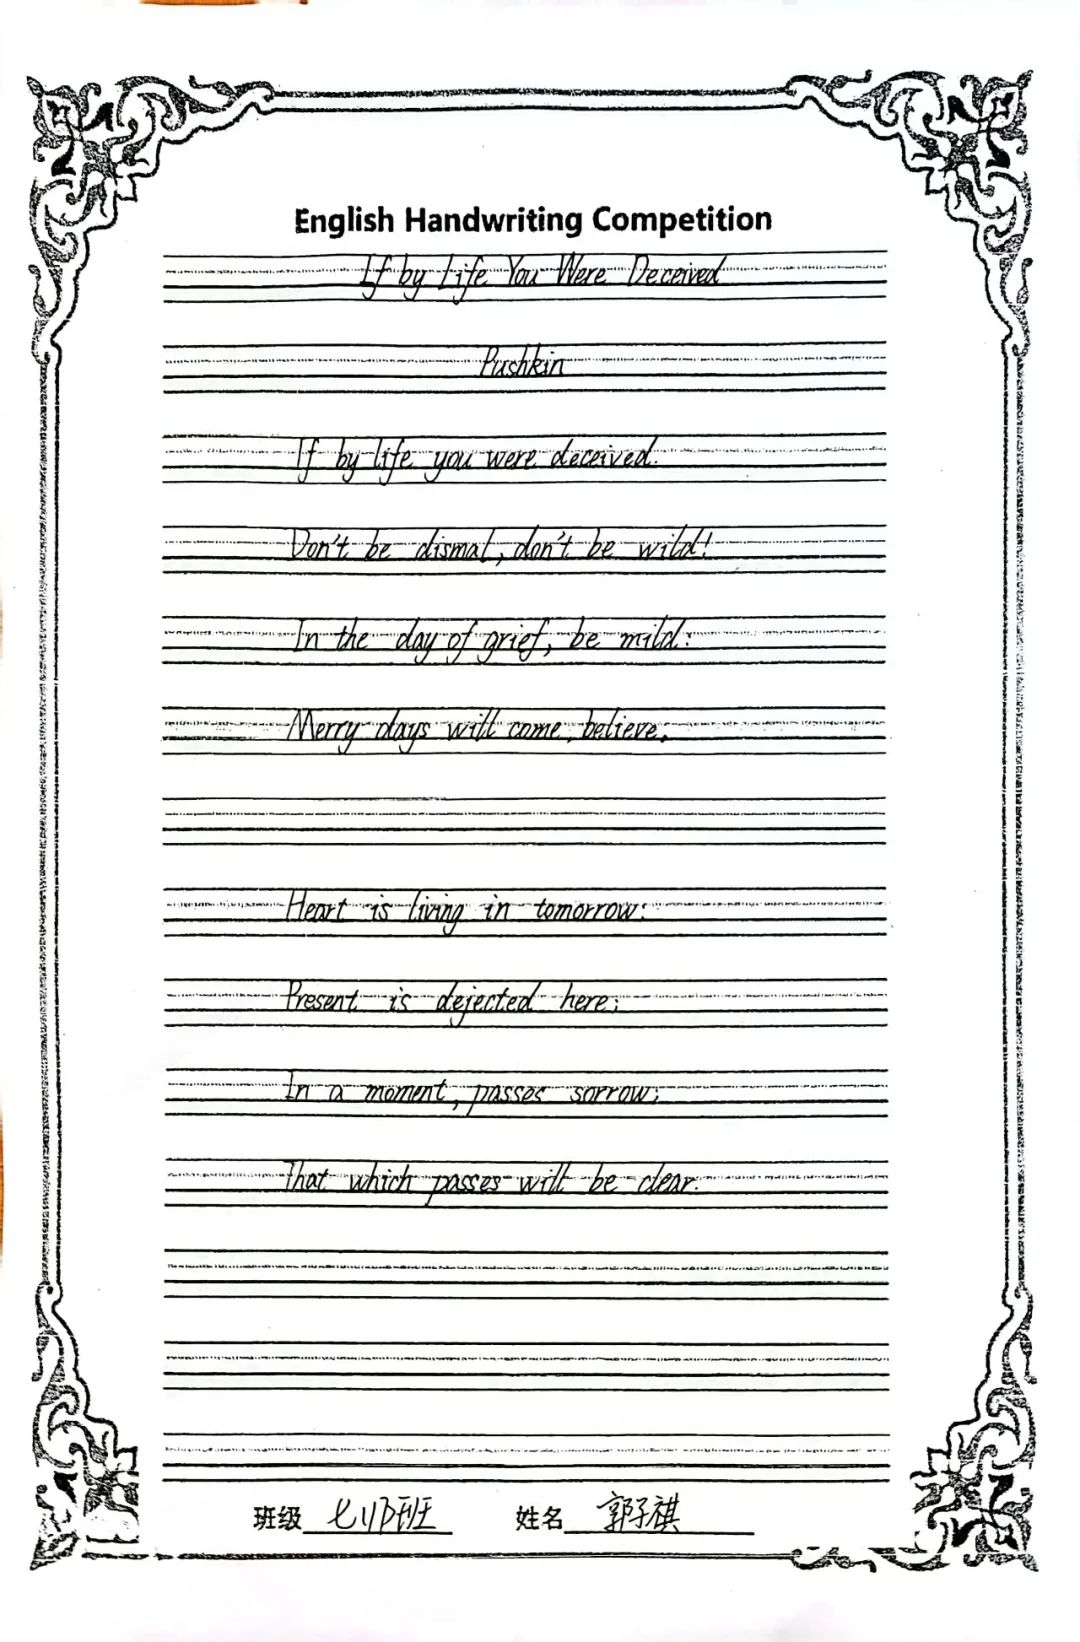 English Handwriting Competition
If by Life You Were Deceived
Pushkin
If by life you were deceived.
Don't be dismal, don't be wild!
In the day of grief, be mild:
Merry days will come, believe.
Heart is living in tomorrow:
Present is dejected here;
In a moment, passes sorrow;
That which passes will be clear.
班级 七 班
姓名 郭子祺